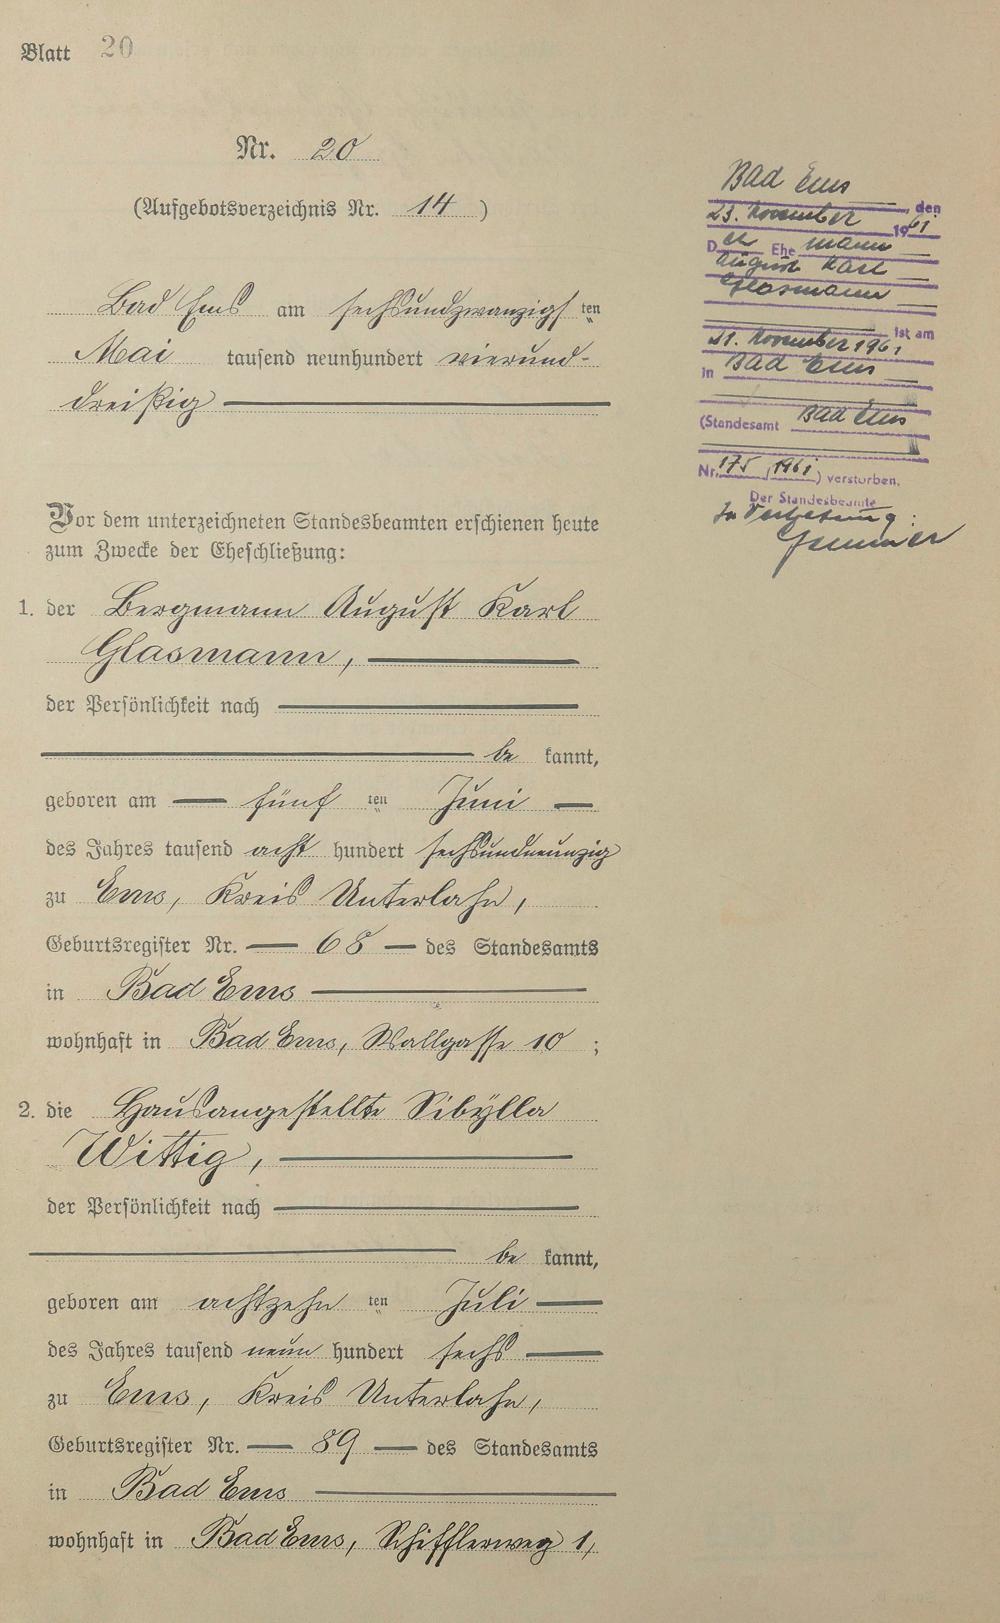 Blatt 20
Nr. 20
(Aufgebotsverzeichnis Nr. 14)
Bad Ems am sechsundzwanzigsten
Mai tausend neunhundert vierund-
dreißig
Vor dem unterzeichneten Standesbeamten erschienen heute
zum Zwecke der Eheschließung:
1. der Bergmann August Karl
Glasmann,
der Persönlichkeit nach
be kannt,
geboren am fünf ten Juni
des Jahres tausend acht hundert sechsundneunzig
zu Ems, Kreis Unterlahn,
Geburtsregister Nr. 68 des Standesamts
in Bad Ems
wohnhaft in Bad Ems, Wallgasse 10 ;
2. die Hausangestellte Sibÿlla
Wittig,
der Persönlichkeit nach
be kannt,
geboren am achtzehn ten Juli
des Jahres tausend neun hundert sechs
zu Ems, Kreis Unterlahn,
Geburtsregister Nr. 89 des Standesamts
in Bad Ems
wohnhaft in Bad Ems, Schifflerweg 1,
Bad Ems
, den
23. November 1961
Der Ehe mann
August Karl
Glasmann
ist am
21. November 1961
in Bad Ems
(Standesamt Bad Ems
Nr. 175 / 1961) verstorben.
Der Standesbeamte
In Vertretung: